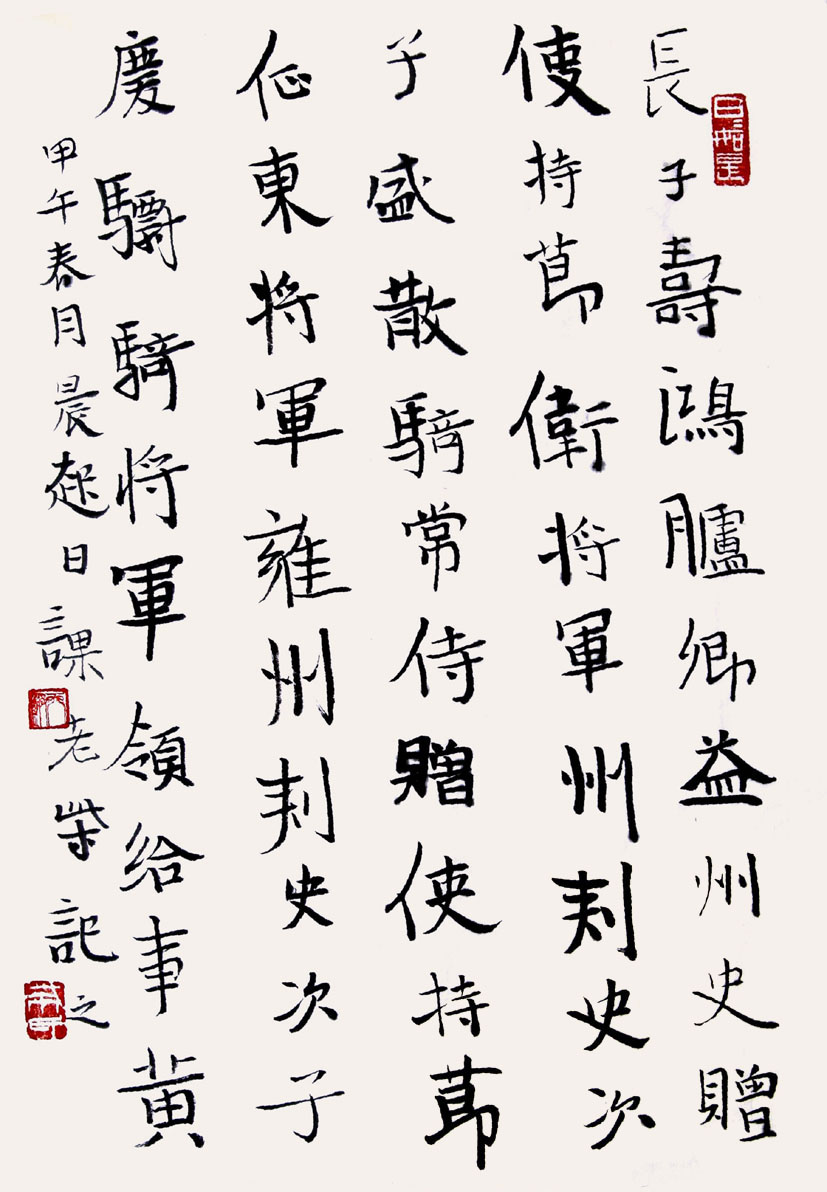 長子壽鴻臚卿益州史贈
使持莭衛将軍州刾史次
子盛散騎常侍贈使持莭
征東将軍雍州刾史次子
慶驃騎将軍領給事黄
甲午春月晨起日課老柴記之